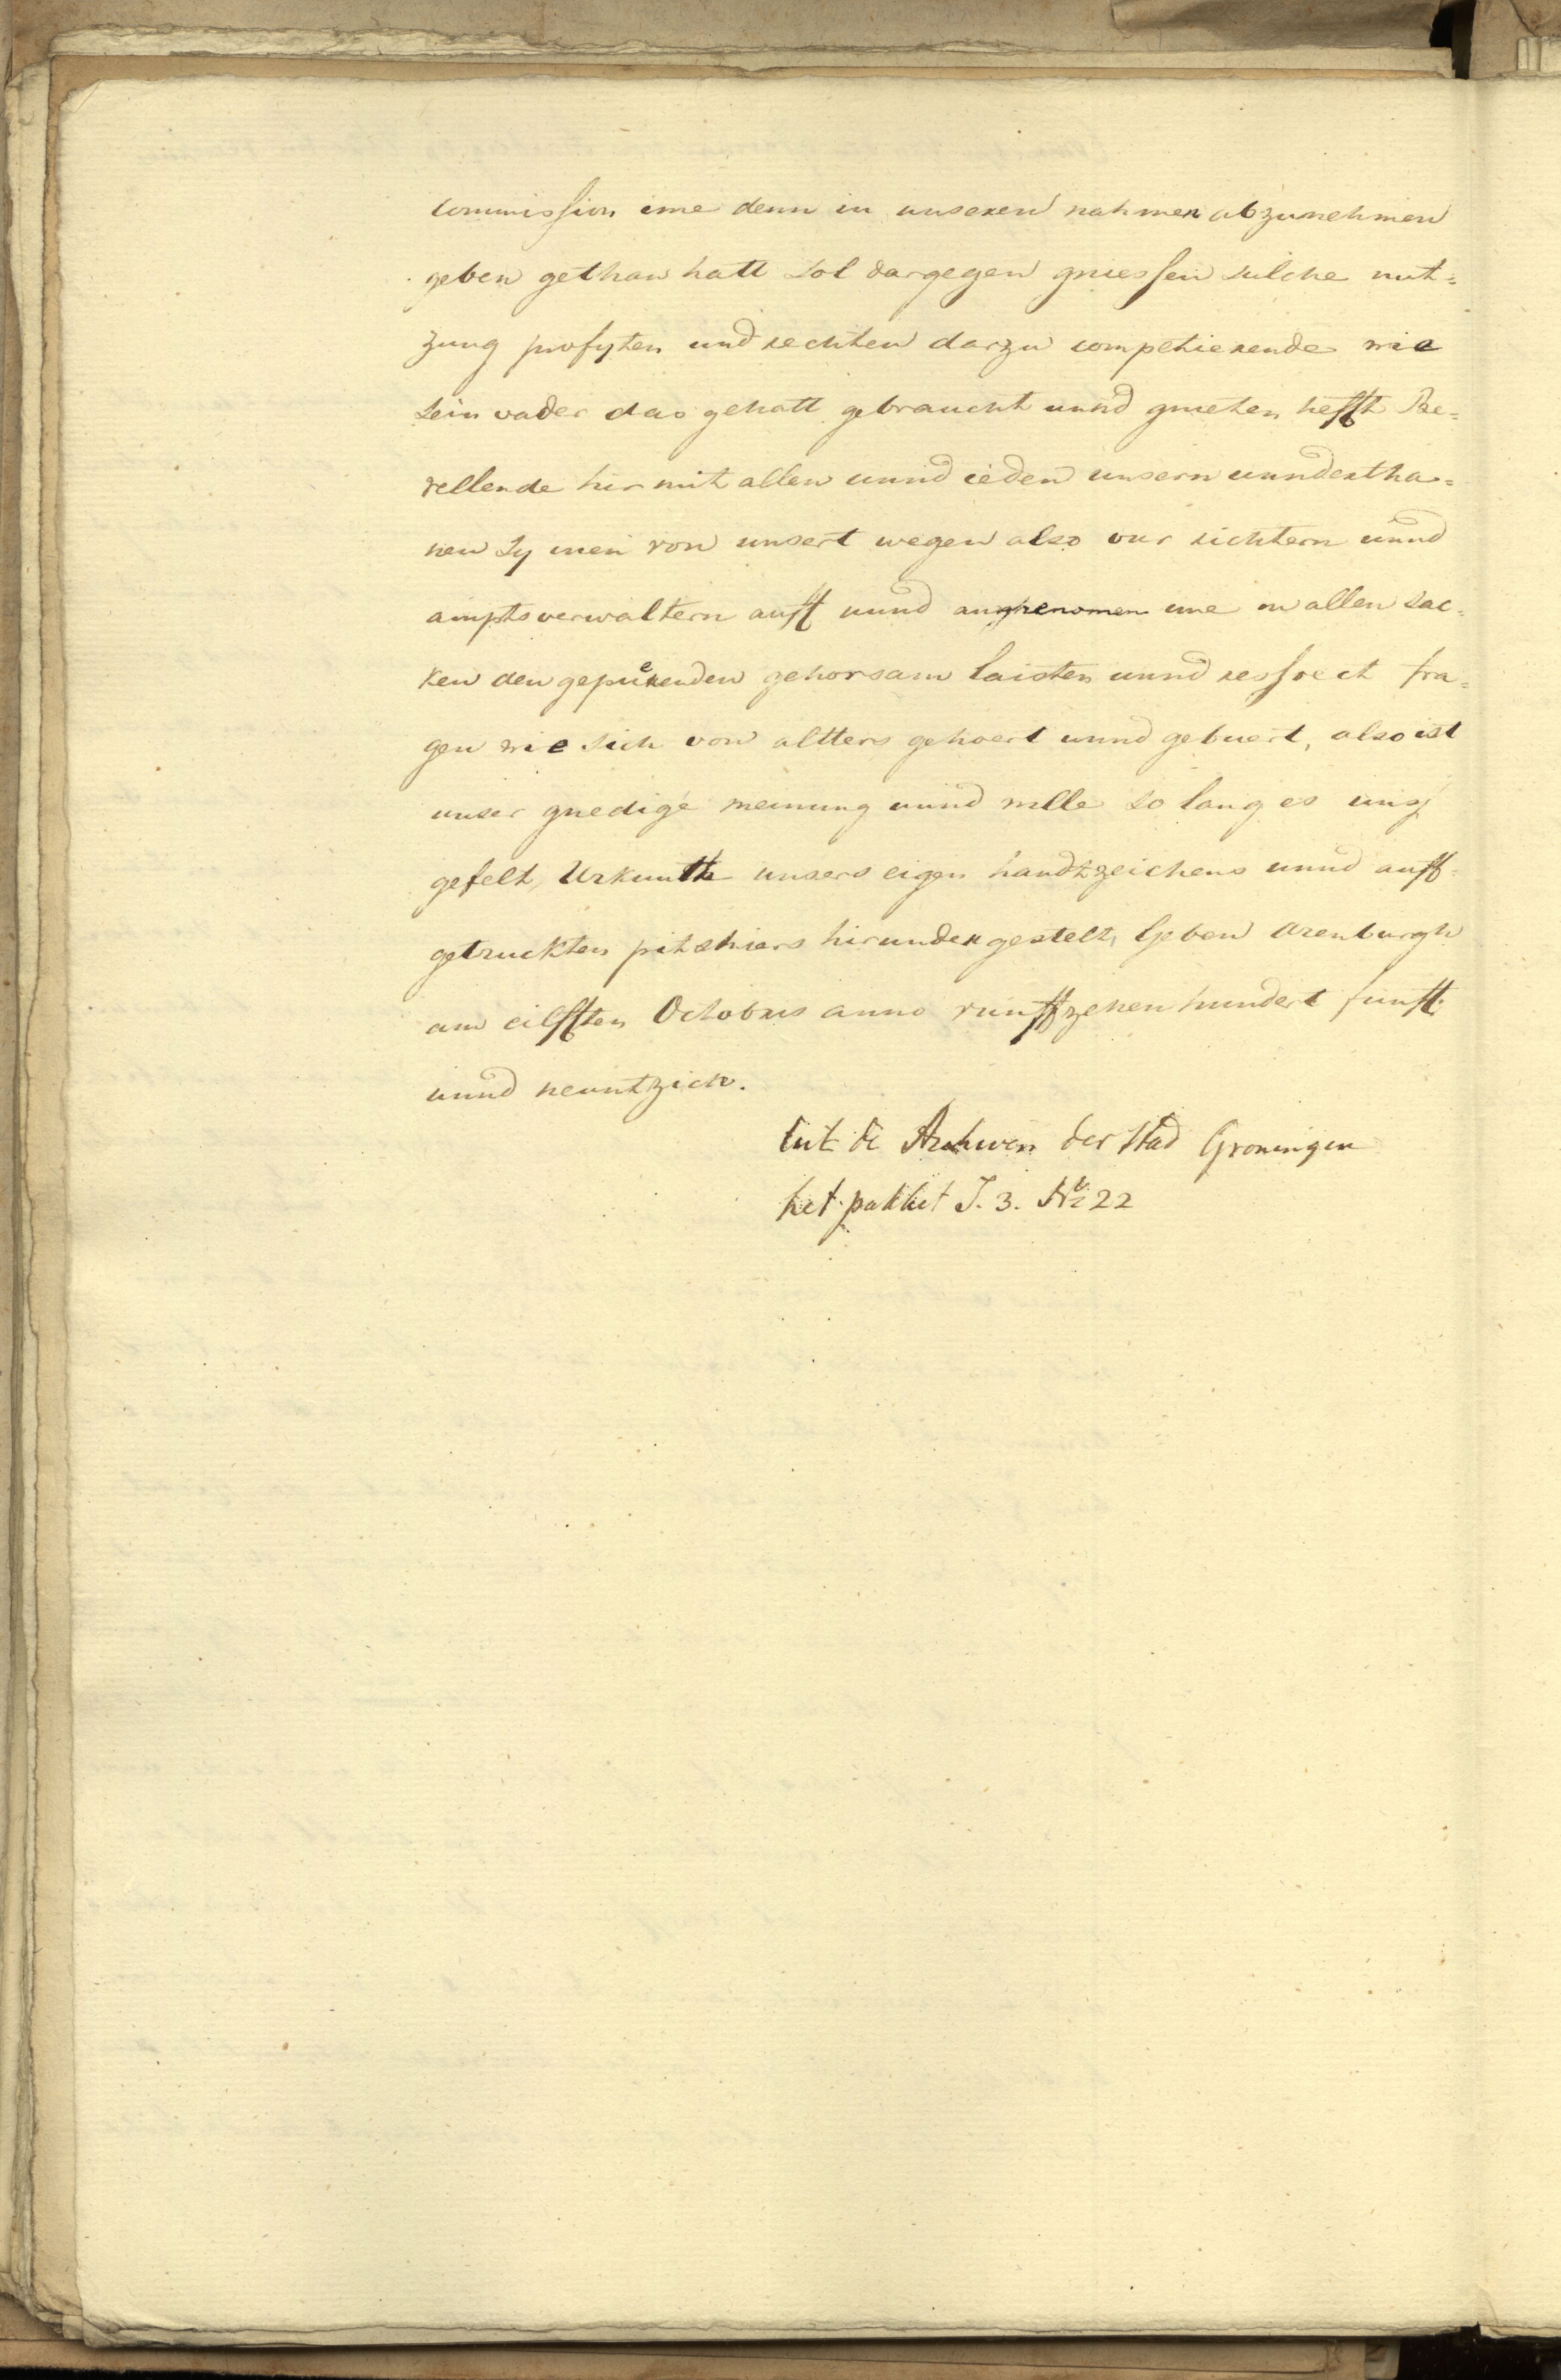 commission ime denn in unseren nahmen abzunehmen
geben gethan hatt sol dargegen gniessen sulche nut=
zung profyten und rechten darzu compitierende wie
sein vader das gehatt gebraucht unnd gnieten hefft Be=
vellende hirmit allen unnd ieden unsern unndertha=
nen sy inen von unsert wegen also vur richtern unnd
ampts verwaltern auff unnd anghenomen ime in allen sac=
ken den gepuerenden gehorsam laisten unnd respect tra=
gen wie sich von altters gehoert unnd gebuert, also ist
unser gnedige meinung unnd wille so lang es uns
gefelt, Urkunth unsers eigen handtzeichens unnd auff
getruckten pitzhiers hirunder gestelt, Geben Arenburgh
am eilfften Octobris anno vunffzehen hundert funff
unnd neuntzich.
Uit de Archiven der Stad Groningen
het pakket I. 3. No 22